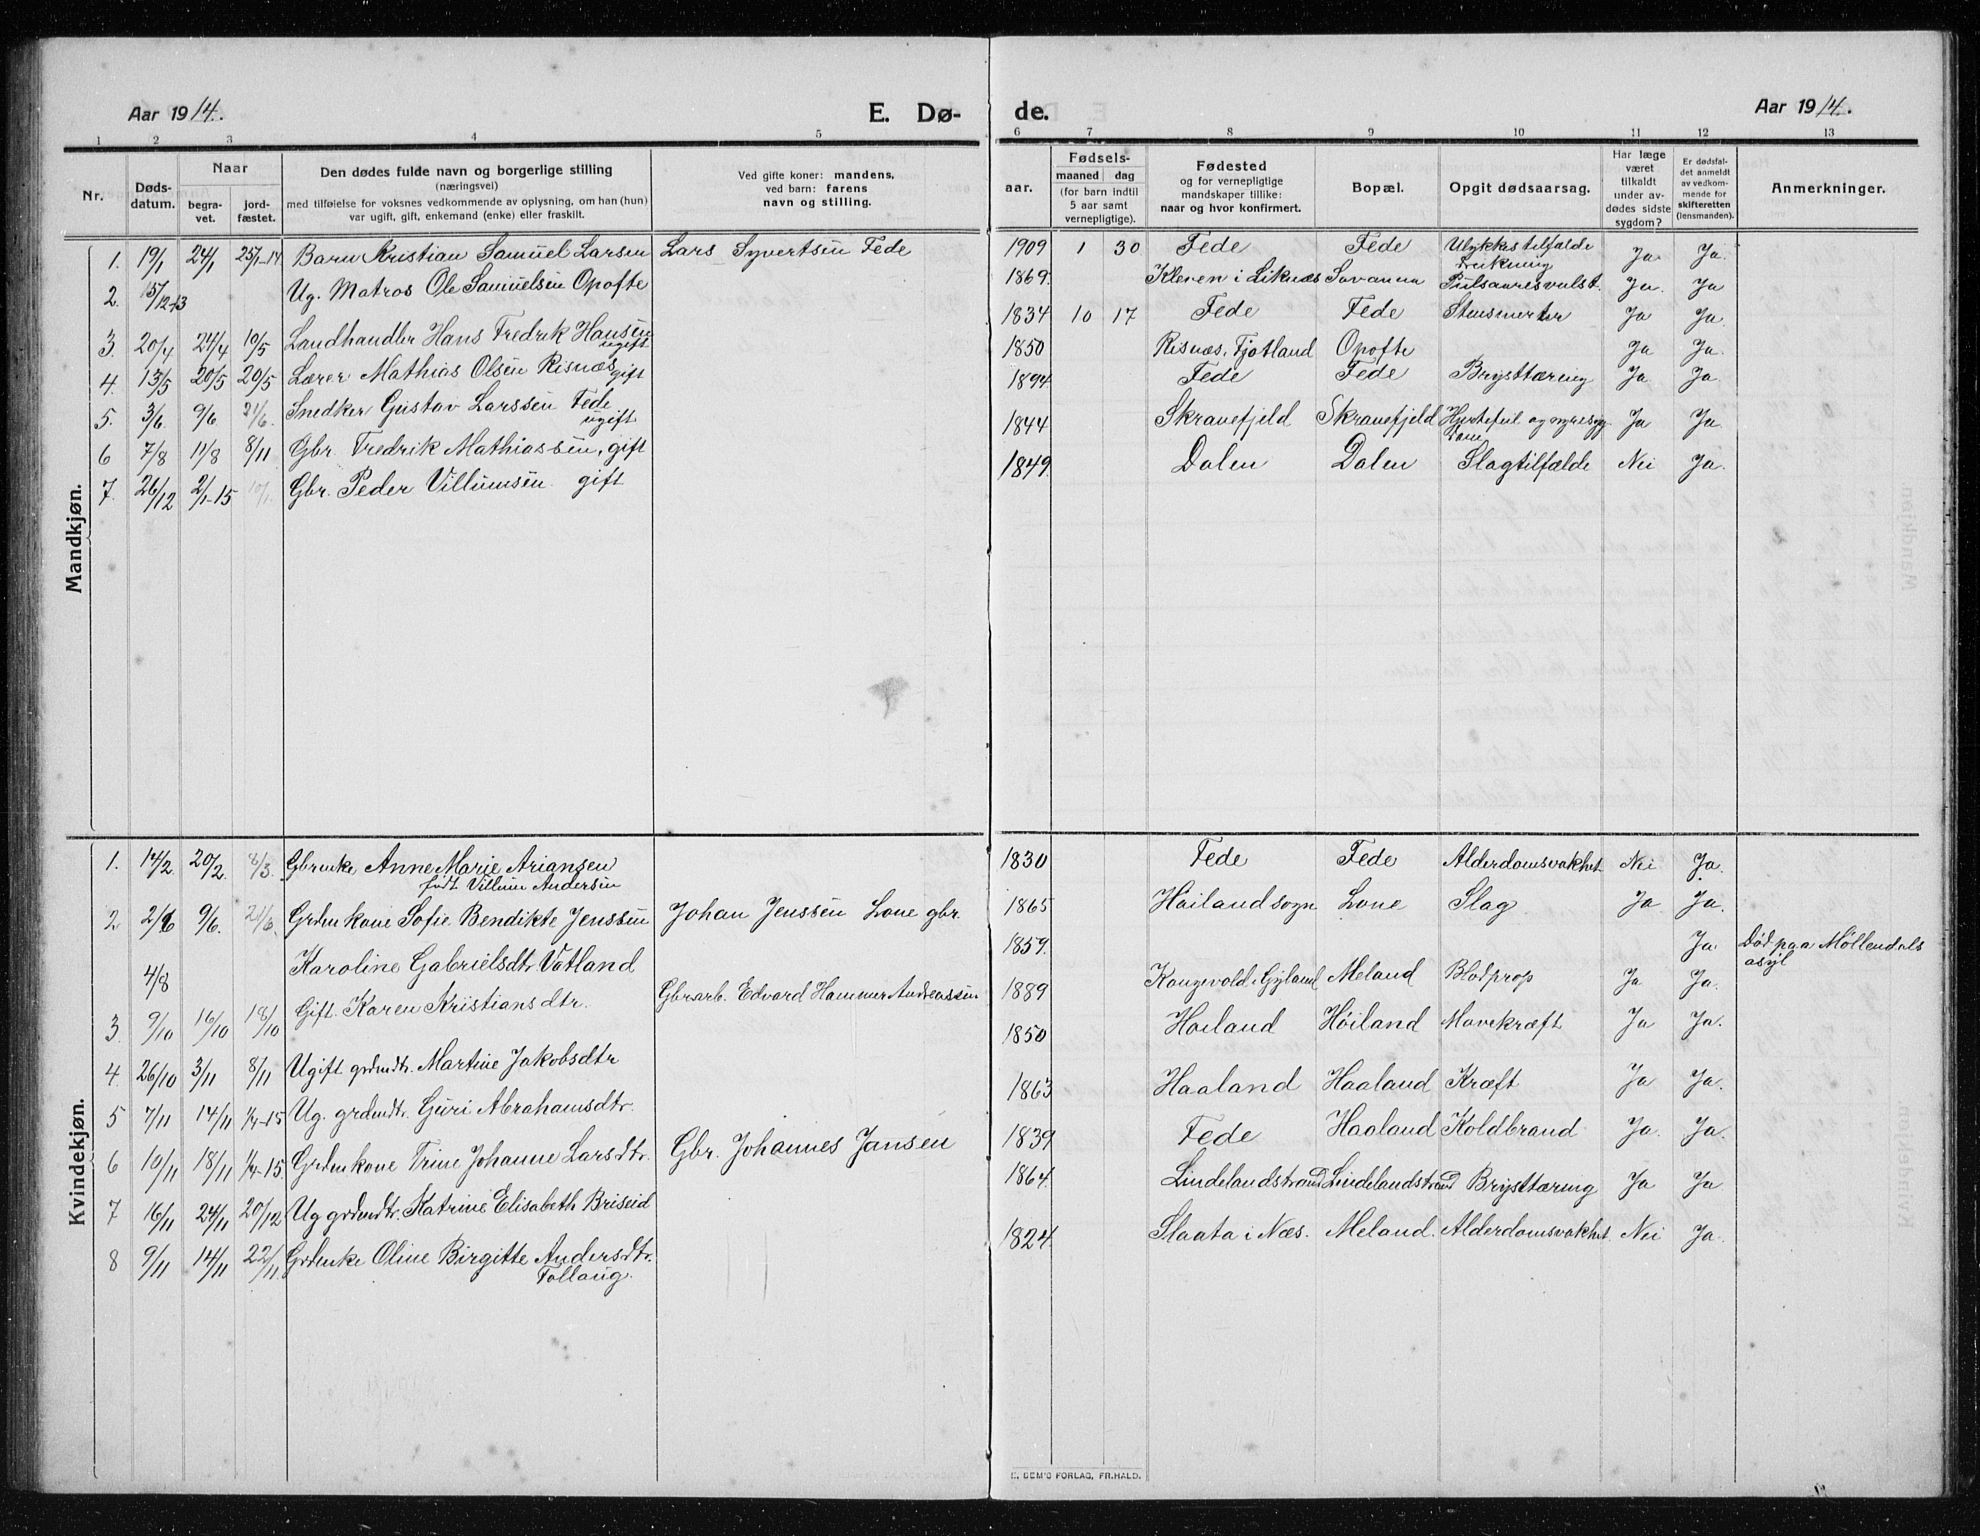 Aar 1914.
E. Dø-
1 2 3 4 5
Nr.
Døds-
datum.
Naar
begra-
vet.
jord-
fæstet.
Den dødes fulde navn og borgerlige stilling
(næringsvei)
med tilføielse for voksnes vedkommende av oplysning, om han (hun)
var ugift, gift, enkemand (enke) eller fraskilt.
Ved gifte koner: mandens,
ved barn: farens
navn og stilling.
Mandkjøn.
1. 19/1 24/1 25/1-14 Barn Kristian Samuel Larsen Lars Syvertsen Fede
2. 15/12-13 Ug. Matros Ole Samuelsen Opofte
3. 20/4 24/4 10/5 Landhandler Hans Fredrik Hansen
ugift
4. 13/5 20/5 20/5 Lærer Mathias Olsen Risnæs gift
5. 3/6 9/6 21/6. Snedker Gustav Larssen Fede
ugift
6 7/8 11/8 8/11 Gbr. Fredrik Mathiassen, gift
7. 26/12 2/1-15 10/1 Gbr. Peder Villumsen gift
Kvindekjøn.
1. 14/2 20/2. 8/3. Gbrenke Anne Marie Ariansen
født Villum Andersen
2 2/6 9/6. 21/6. Grdm kone Sofie Bendikte Jenssen Johan Jenssen Lone gbr.
4/8 Karoline Gabrielsdtr Vatland
3 9/10 16/10 18/10 Gift. Karen Kristiansdtr. Gbrarb. Edvard Hammer Andreassen
4. 26/10 3/11 8/11 Ugift grdmdtr. Martine Jakobsdtr
5 7/11 14/11 1/4-15 Ug. grdmdtr. Guri Abrahamsdtr.
6 10/11 18/11 1/4-15. Grdm kone Trine Johanne Larsdtr. Gbr. Johannes Jansen
7 16/11 24/11 20/12 Ug grdmdtr. Katrine Elisabeth Briseid
8 9/11 14/11 22/11 Grdenke Oline Birgitte Andersdtr.
Follaug.
de.
Aar 1914.
6 7 8 9 10 11 12 13
aar.
Fødsels-
maaned dag
(for barn indtil
5 aar samt
vernepligtige).
Fødested
og for vernepligtige
mandskaper tillike:
naar og hvor konfirmert.
Bopæl.
Opgit dødsaarsag.
Har læge
været
tilkaldt
under av-
dødes sidste
sygdom?
Er dødsfal-
det anmeldt
av vedkom-
mende for
skifteretten
(lensmanden).
Anmerkninger.
1909 1 30 Fede Fede Ulykkestilfælde
Ja Ja.
1869. Kleven i Liknes Savanna Pulsaaresvulst. Ja. Ja
1834 10 17 Fede Fede Ja Ja.
1850 Risnæs, Fjotland Opofte Ja Ja.
1894 Fede Fede Brysttæring Ja Ja
1844 Skravefjeld Skravefjeld Hjertefeil og nyresyg
dom Ja Ja.
1849. Dalen Dalen Slagtilfælde Nei Ja.
1830 Fede Fede Alderdomsvakhet Nei Ja.
1865 Høiland sogn Lone Slag Ja Ja.
1859. Ja Død paa Møllendals
asyl
1889 Kongevold i Gyland Meland Blodprop Ja Ja.
1850 Høiland Høiland Mavekræft Ja Ja.
1863 Haaland Haaland Kræft Ja Ja.
1839 Fede Haaland Koldbrand Ja. Ja.
1864. Lindelandstrand Lindelandstrand Brysttæring Ja Ja
1824. Slaata i Næs. Meland. Alderdomsvakhet Nei Ja.
E. SEM'S FORLAG, FR.HALD.